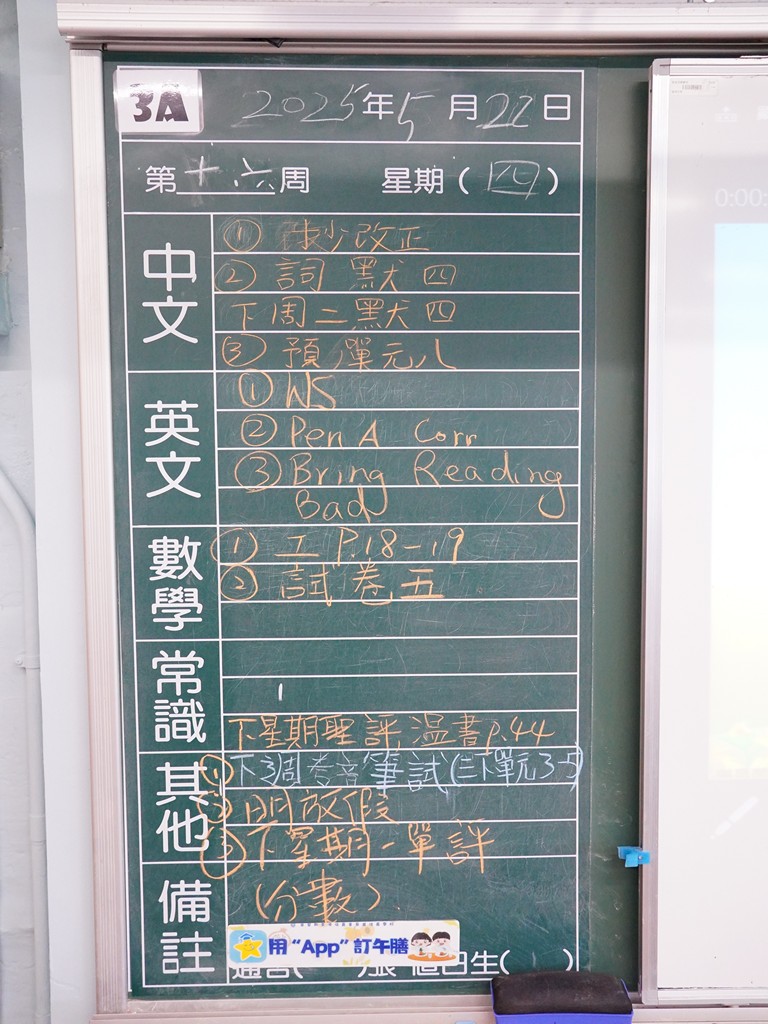 3A 2025年5月22日
第十六周 星期(四)
中文
① 改正
② 詞 默 四
下周二默四
③ 預單元八
英文
① WS
② Pen A Corr
③ Bring Reading
Bad
數學
① 工 P.18-19
② 試卷五
常識
下星期聖評溫書p.44
其他
① 下週考音筆試(三下單元3-5)
② 明放假
③ 下星期一單評
備註
(分數)
用“App”訂午膳
通告( )張 值日生( )
0:00: